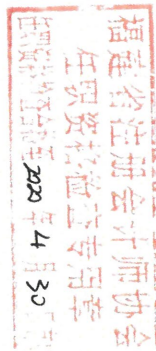 福建省注册会计师协会
任职资格检查专用章
2020年4月30